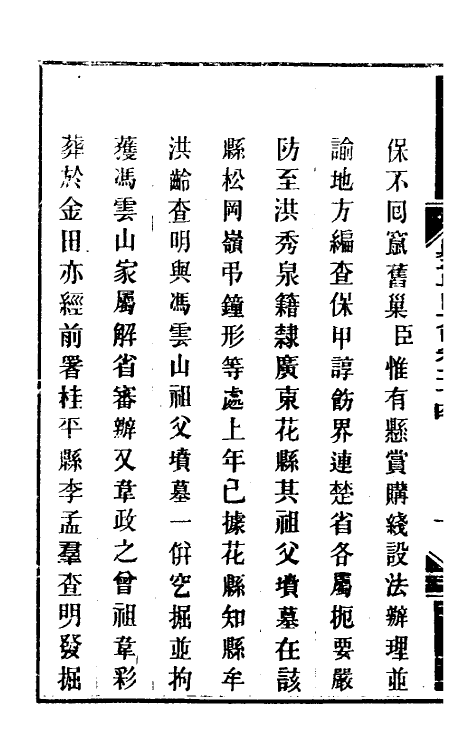 保不囘竄舊巢臣惟有懸賞購綫設法辦理並
諭地方編查保甲諄飭界連楚省各屬扼要嚴
防至洪秀泉籍隸廣東花縣其祖父墳墓在該
縣松岡嶺弔鐘形等處上年已據花縣知縣牟
洪齡查明與馮雲山祖父墳墓一倂穵掘並拘
獲馮雲山家屬解省審辦又韋政之曾祖韋彩
葬於金田亦經前署桂平縣李孟羣查明發掘